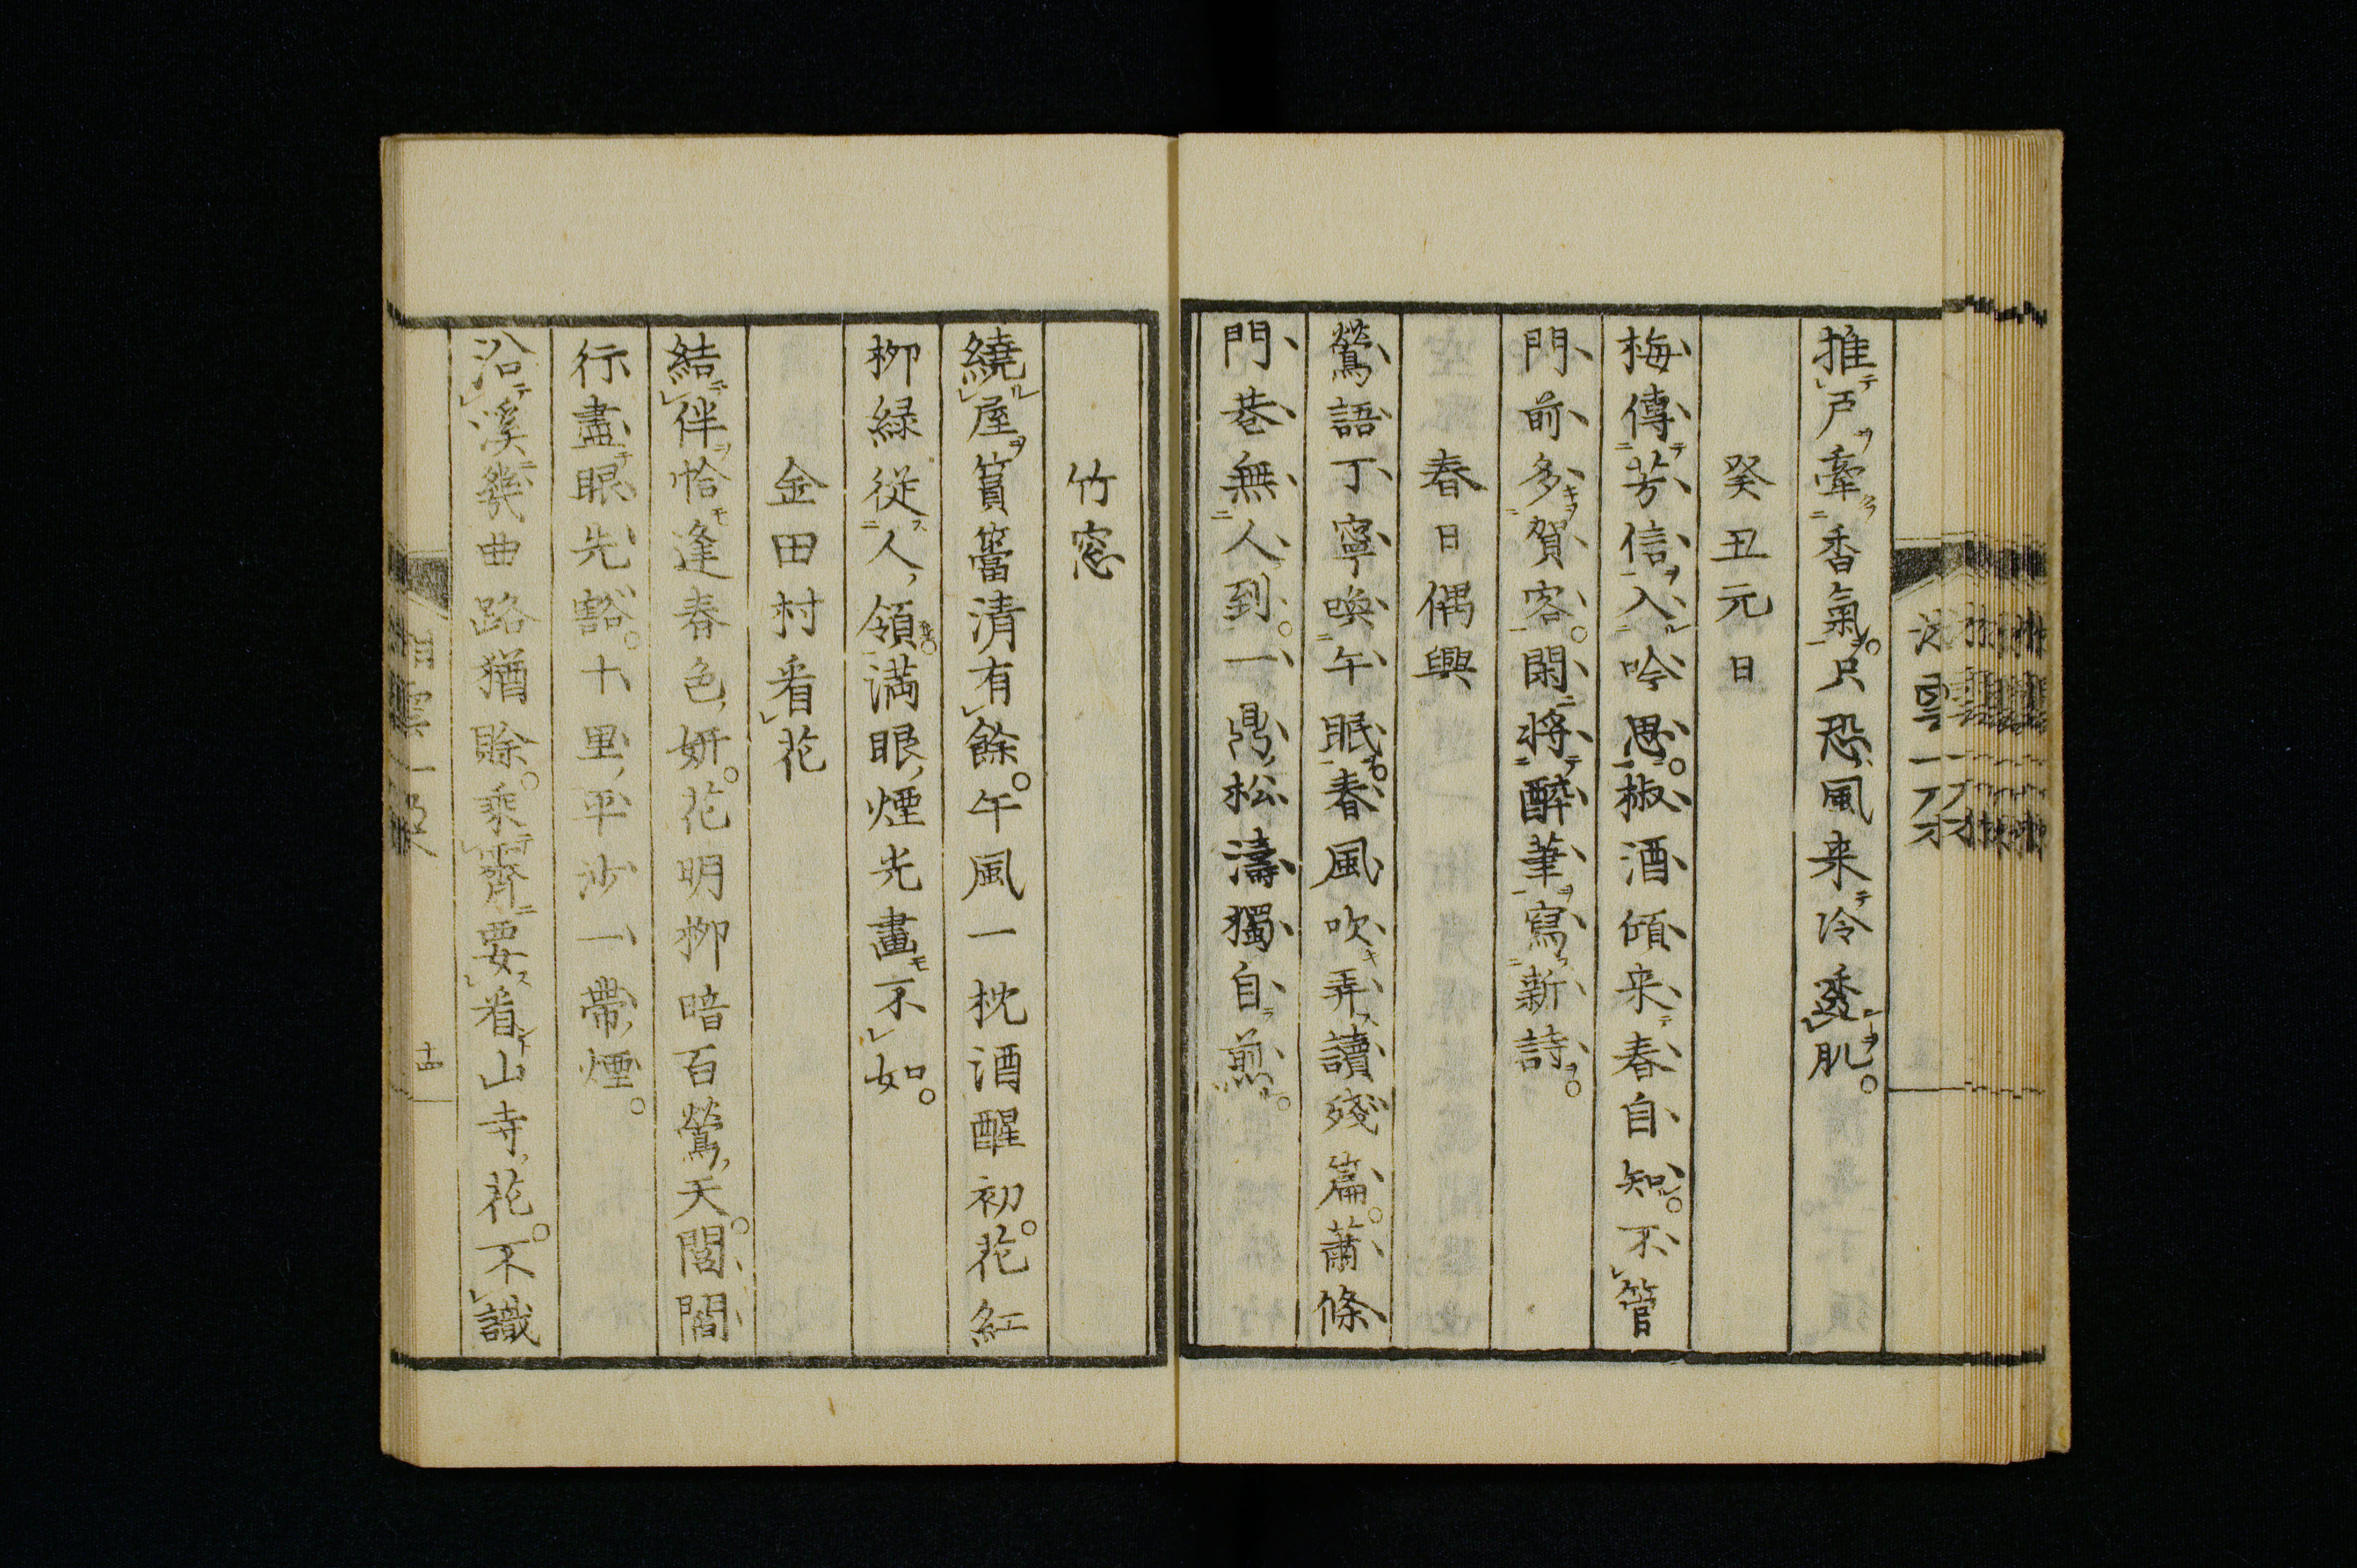 推戸牽香氣只恐風来冷透肌
癸丑元日
梅傳芳信入吟思椒酒傾来春自知不管
門前多賀客閑將醉筆寫新詩
春日偶興
鶯語丁寧喚午眠春風吹弄讀殘篇蕭條
門巷無人到一鼎松濤獨自煎
竹窓
繞屋篔簹清有餘午風一枕酒醒初花紅
柳緑從人領満眼煙光畫不如
金田村看花
結伴恰逢春色妍花明柳暗百鶯天閭閻
行盡眼先豁十里平沙一帶煙
沿溪幾曲路猶賖乘霽要看山寺花不識
十四